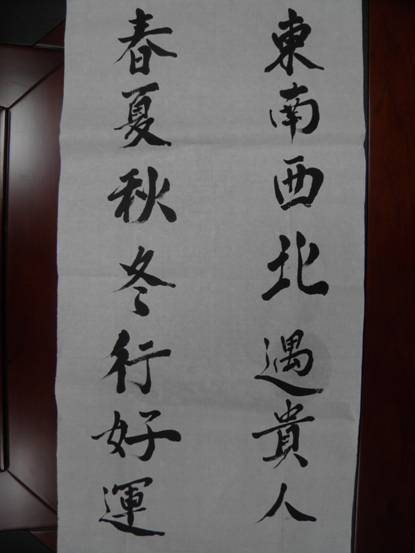 東南西北遇貴人
春夏秋冬行好運